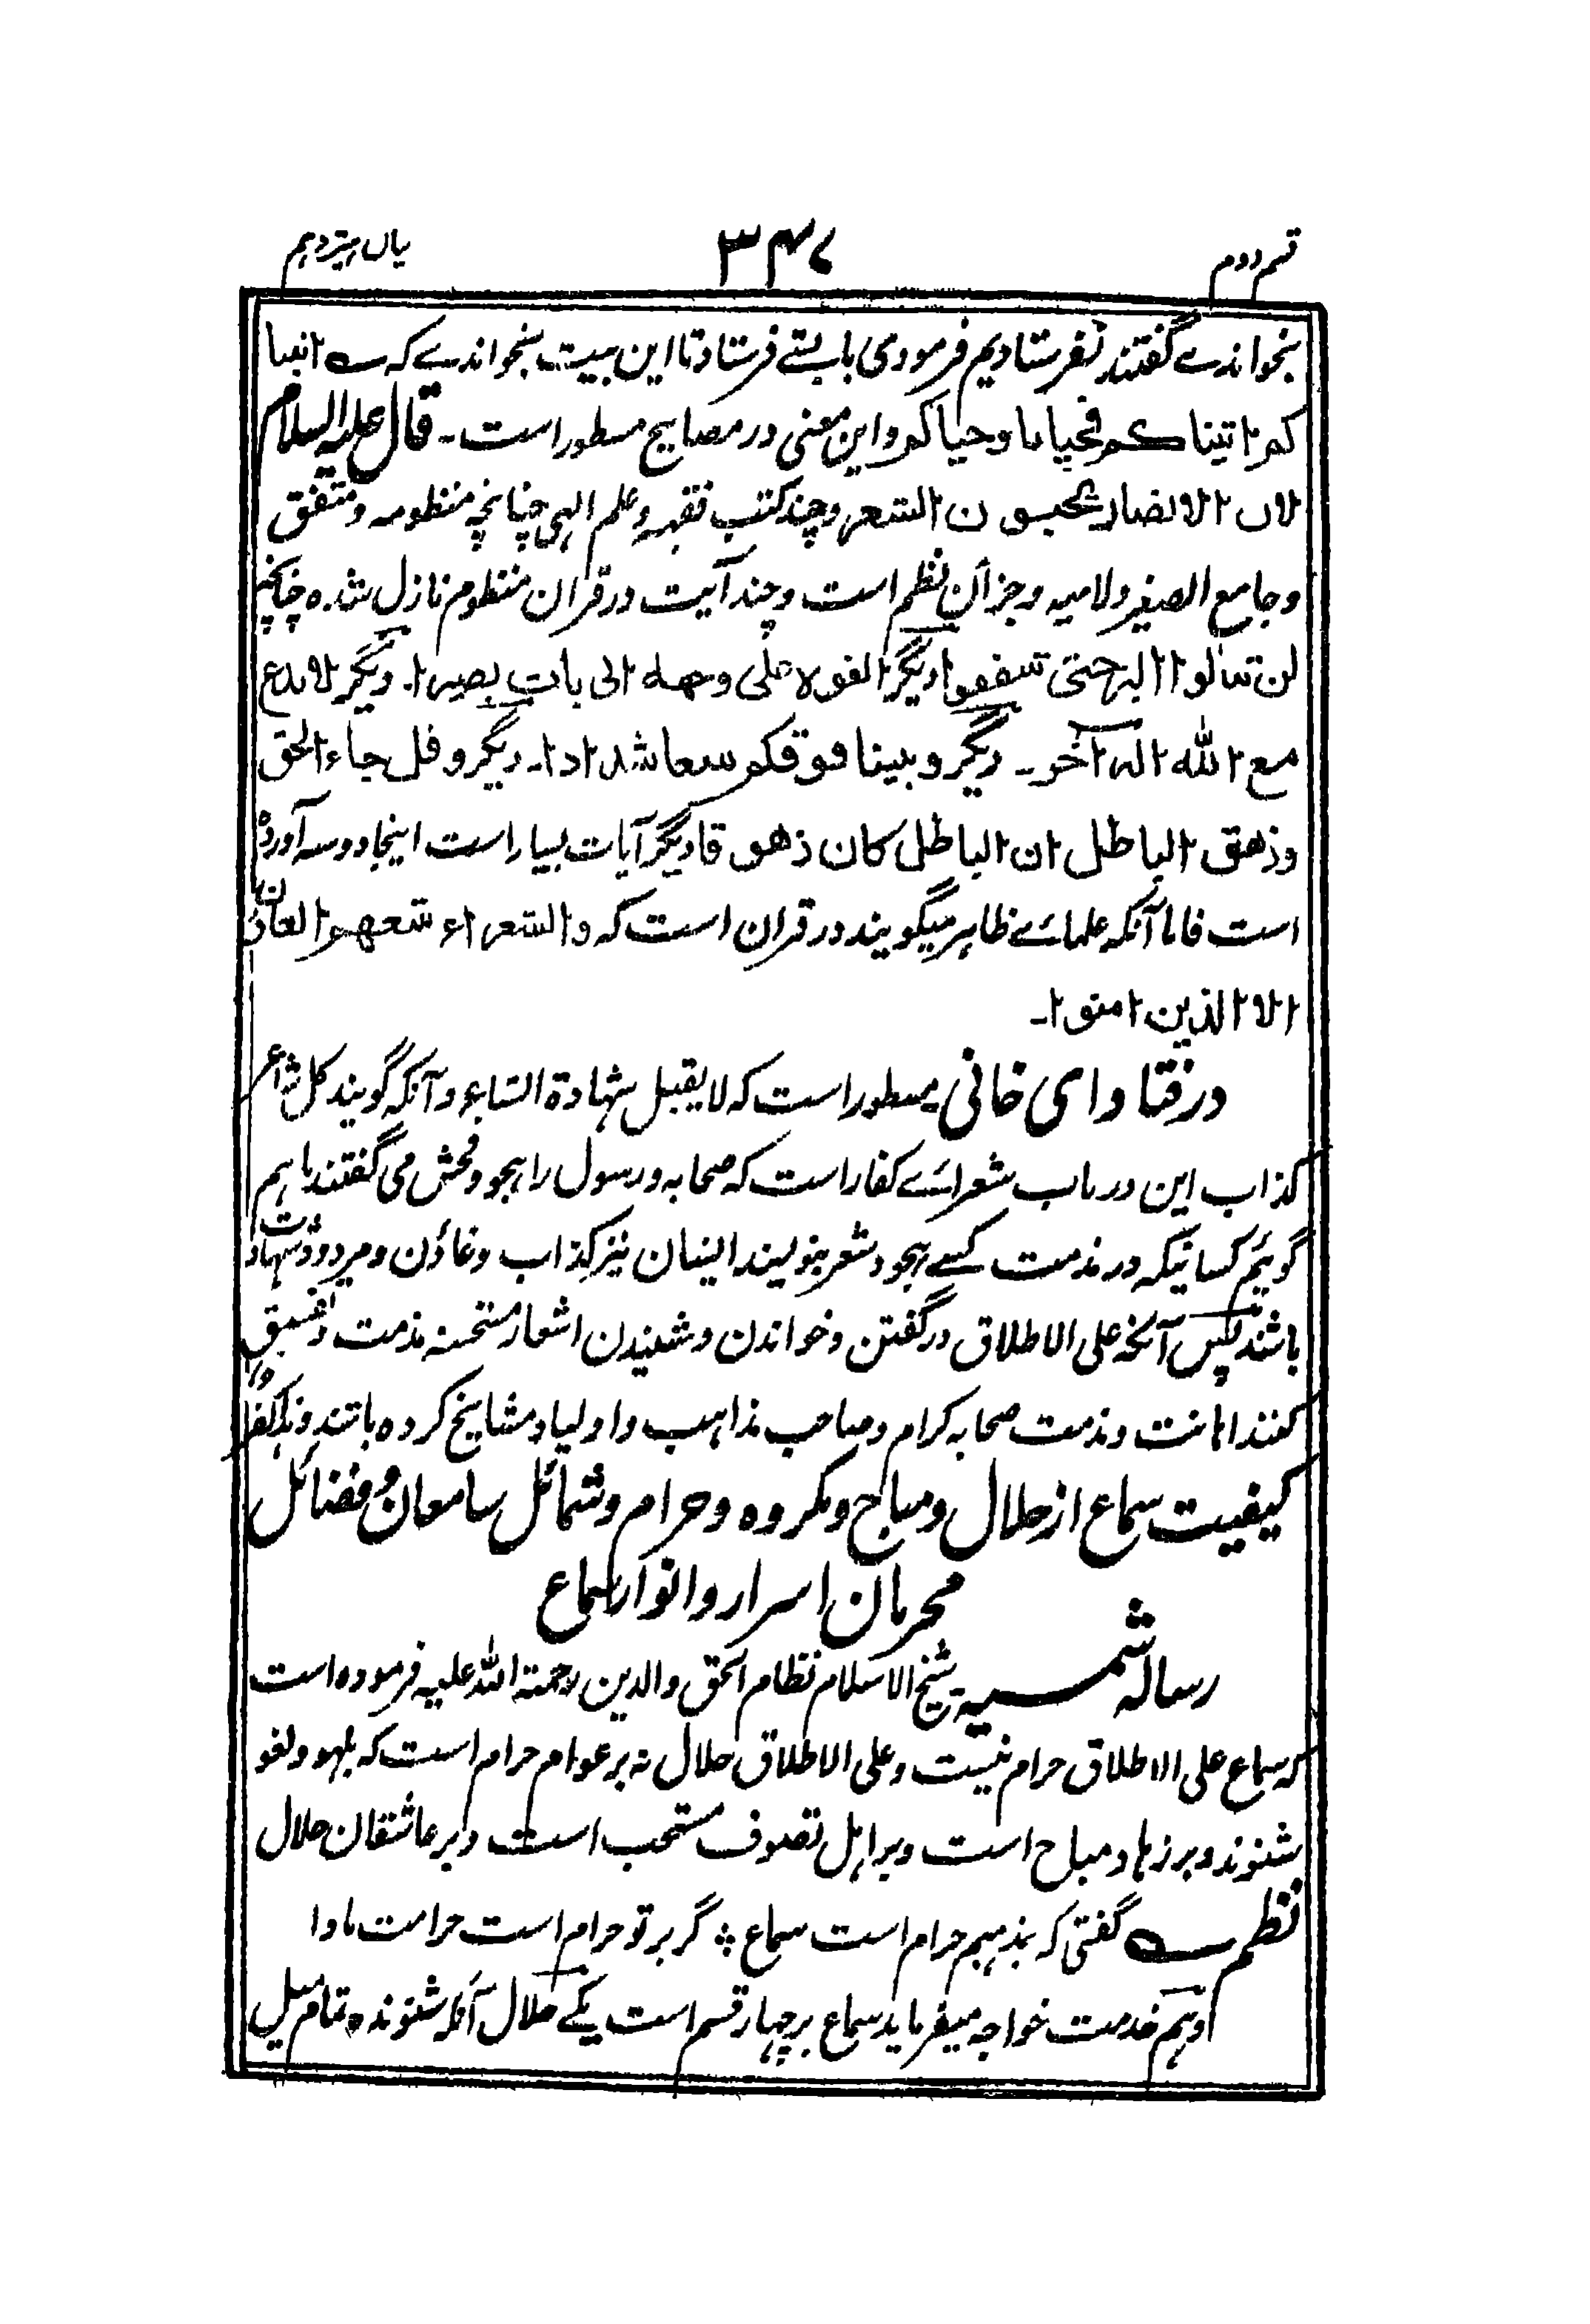 قسم دوم ۳۴۷ بیان هیزدهم
بخواندے گفتند نفرستادیم فرمودی بایستے فرستاد تا این بیت بخواندے که ؎ اتینا
کم اتیناکم فحیانا وحیاکم واین معنی در مصابیح مسطور است۔ قال علیه السلام
لان الانصار یحبون الشعر وچند کتب فقه وعلم الهی چنانچه منظومه ومتفق
وجامع الصغیر ولامیه وجز آن نظم است وچند آیت در قران منظوم نازل شده چنانچه
لن تنالوا البر حتی تنفقوا دیگر القوه علی وجهه ابی یات بصیرا۔ دیگر لا تدع
مع الله الها آخر۔ دیگر وبنینا فوقکم سبعا شدادا۔ دیگر وقل جاء الحق
وزهق الباطل ان الباطل کان زهوقا دیگر آیات بسیار است اینجا دو سه آورده
است فاما آنکه علمائے ظاهر میگویند در قران است که والشعراء یتبعهم الغاوون
الا الذین امنوا۔
در فتاوای خانی مسطور است که لا یقبل شهادة الشاعر وآنکه گویند کل شاعر
کذاب این در باب شعرائے کفار است که صحابه ورسول را هجو وفحش می گفتند ما هم
گوئیم کسانیکه در مذمت کسے هجو وشعر بنویسند ایشان نیز کذاب وغاؤن ومردود شهادت
باشند پس آنکه علی الاطلاق در گفتن وخواندن وشنیدن اشعار مستحسنه مذمت وتفسیق
کنند اهانت ومذمت صحابه کرام وصاحب مذاهب واولیا ومشایخ کرده باشند
کیفیت سماع از حلال ومباح ومکروه وحرام وشمائل سامعان وفضائل
محرمان اسرار وانوار سماع
رساله شمسیه شیخ الاسلام نظام الحق والدین رحمة الله علیه فرموده است
که سماع علی الاطلاق حرام نیست وعلی الاطلاق حلال نه بر عوام حرام است که بلهو ولغو
شنوند وبر زهاد مباح است وبر اهل تصوف مستحب است وبر عاشقان حلال
نظم ؎ گفتی که بمذهبم حرام است سماع ؞ گر بر تو حرام است حرامت بادا
وهم خدمت خواجه میفرماید سماع بر چهار قسم است یکے حلال آنکه شنونده تمام میل